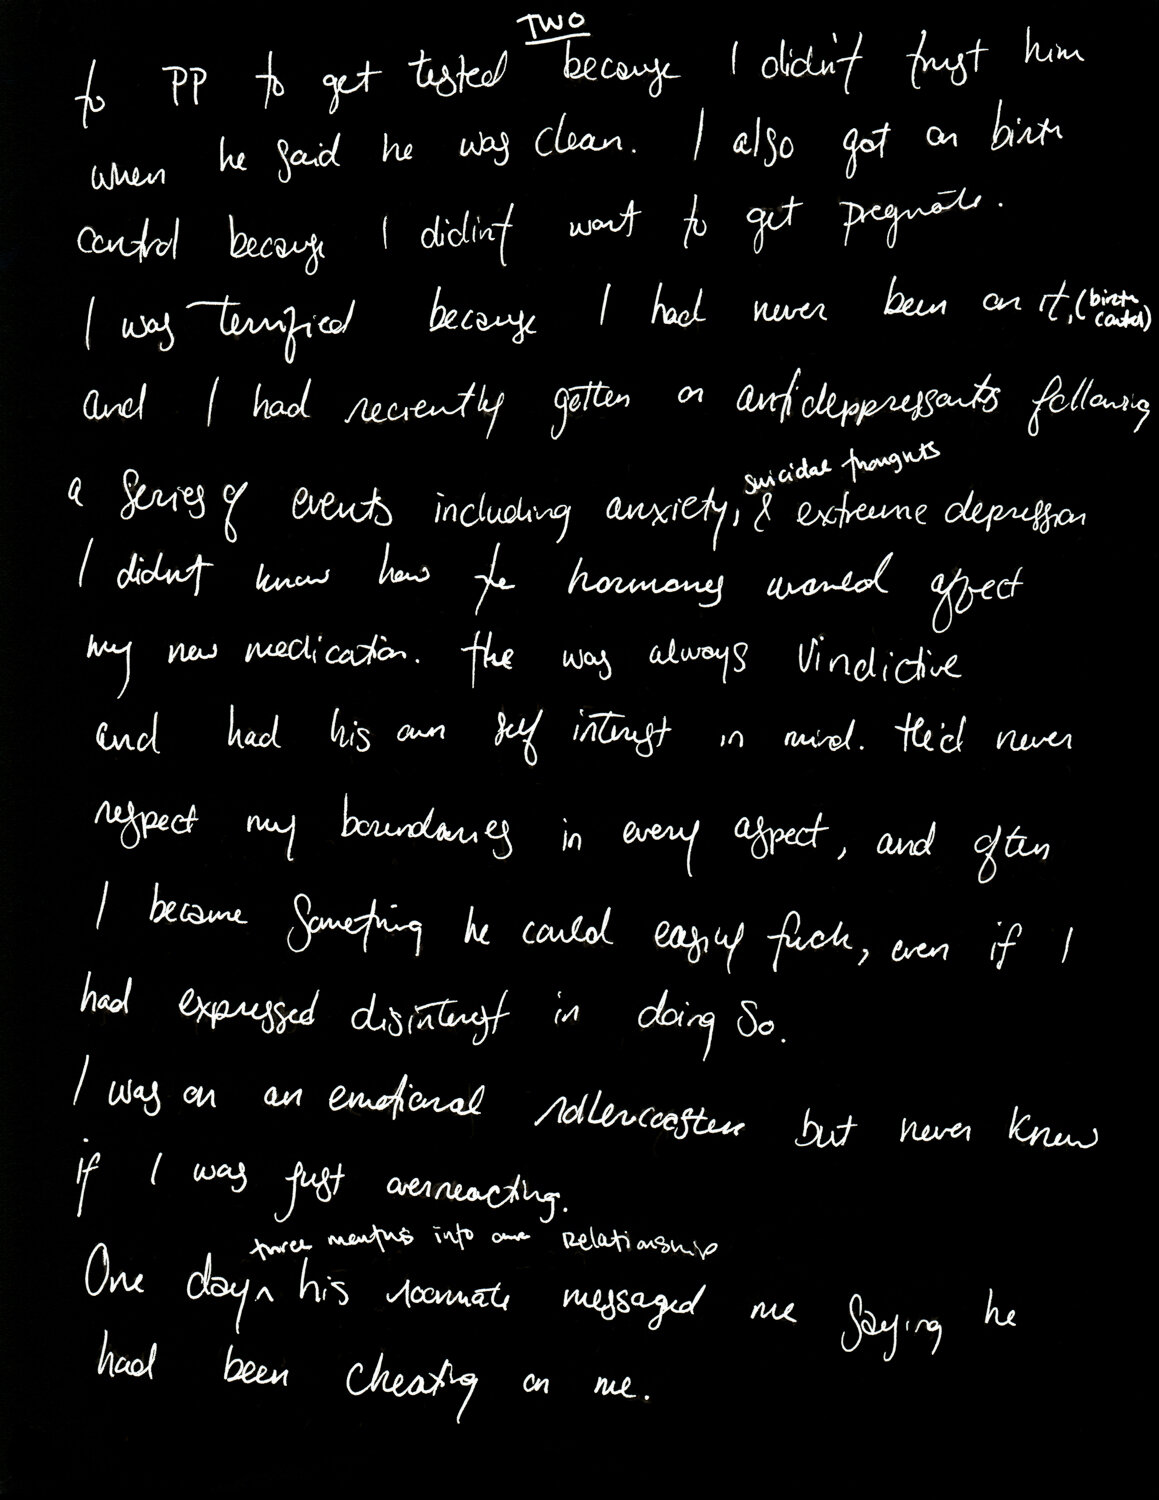 TWO
to PP to get tested because I didin't trust him
when he said he was clean. I also got on birth
control because I didin't want to get pregnate.
I was terrified because I had never been on it, (birth control)
and I had reciently gotten on antideppressants following
suicidal thoughts
a series of events including anxiety, & extreme depression
I didn't know how the hormones would affect
my new medication. He was always vindictive
and had his own self interest in mind. He'd never
respect my boundaries in every aspect, and often
I became something he could easily fuck, even if I
had expressed disinterest in doing so.
I was on an emotional rollercoaster but never knew
if I was just overreacting.
three months into our relationship
One day^ his roommate messaged me saying he
had been cheating on me.